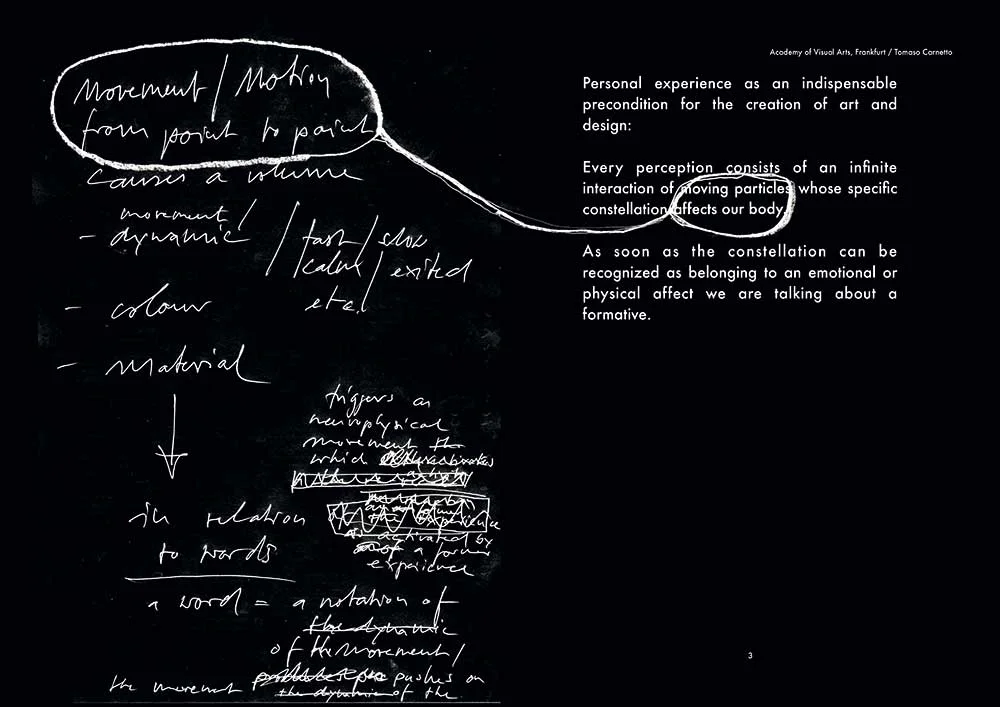 Movement / Motion
from point to point
causes a volume
movement /
- dynamic / fast / slow
/ calm / exited
etc.
- colour
- material
triggers an
neurophysical
movement the
which
in relation
to words
the experience
is activated by
of a former
experience
a word = a notation of
the dynamic
of the movement /
the movement pushes on
the dynamic of the
Academy of Visual Arts, Frankfurt / Tomaso Carnetto
Personal experience as an indispensable
precondition for the creation of art and
design:
Every perception consists of an infinite
interaction of moving particles whose specific
constellation affects our body.
As soon as the constellation can be
recognized as belonging to an emotional or
physical affect we are talking about a
formative.
3